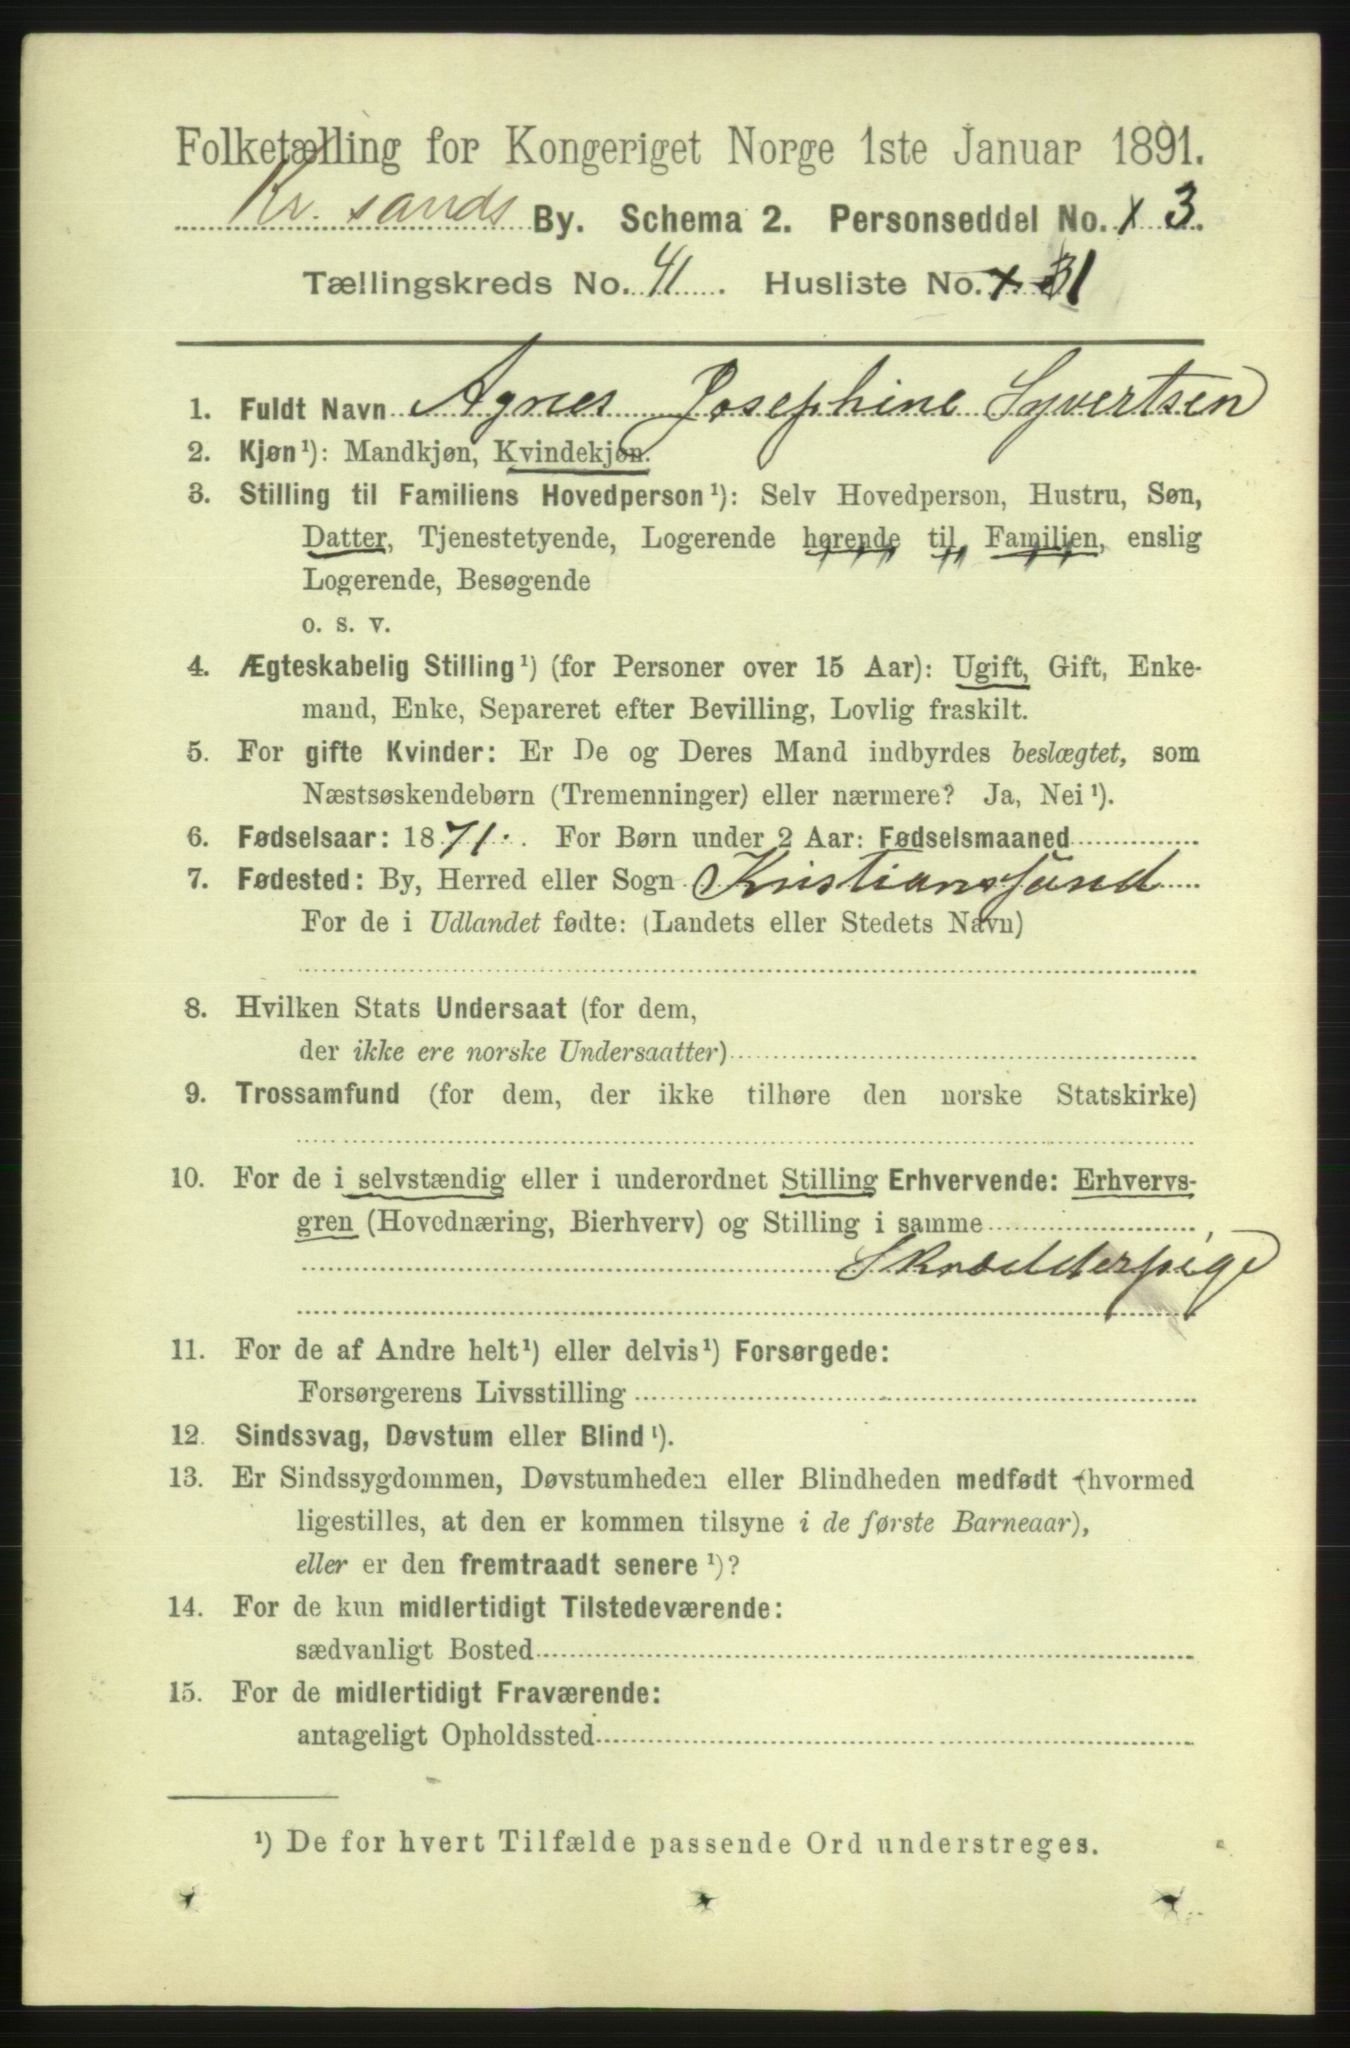 Folketælling for Kongeriget Norge 1ste Januar 1891.
Kr. sands By. Schema 2. Personseddel No. x 3.
Tællingskreds No. 41. Husliste No. x 31
1. Fuldt Navn Agnes Josephine Syvertsen
2. Kjøn¹): Mandkjøn, Kvindekjøn.
3. Stilling til Familiens Hovedperson¹): Selv Hovedperson, Hustru, Søn,
Datter, Tjenestetyende, Logerende hørende til Familien, enslig
Logerende, Besøgende
o. s. v.
4. Ægteskabelig Stilling¹) (for Personer over 15 Aar): Ugift, Gift, Enke-
mand, Enke, Separeret efter Bevilling, Lovlig fraskilt.
5. For gifte Kvinder: Er De og Deres Mand indbyrdes beslægtet, som
Næstsøskendebørn (Tremenninger) eller nærmere? Ja, Nei¹).
6. Fødselsaar: 1871. For Børn under 2 Aar: Fødselsmaaned
7. Fødested: By, Herred eller Sogn Kristianssand
For de i Udlandet fødte: (Landets eller Stedets Navn)
8. Hvilken Stats Undersaat (for dem,
der ikke ere norske Undersaatter)
9. Trossamfund (for dem, der ikke tilhøre den norske Statskirke)
10. For de i selvstændig eller i underordnet Stilling Erhvervende: Erhvervs-
gren (Hovednæring, Bierhverv) og Stilling i samme
Skrædderpige
11. For de af Andre helt¹) eller delvis¹) Forsørgede:
Forsørgerens Livsstilling
12. Sindssvag, Døvstum eller Blind¹).
13. Er Sindssygdommen, Døvstumheden eller Blindheden medfødt (hvormed
ligestilles, at den er kommen tilsyne i de første Barneaar),
eller er den fremtraadt senere¹)?
14. For de kun midlertidigt Tilstedeværende:
sædvanligt Bosted
15. For de midlertidigt Fraværende:
antageligt Opholdssted
¹) De for hvert Tilfælde passende Ord understreges.